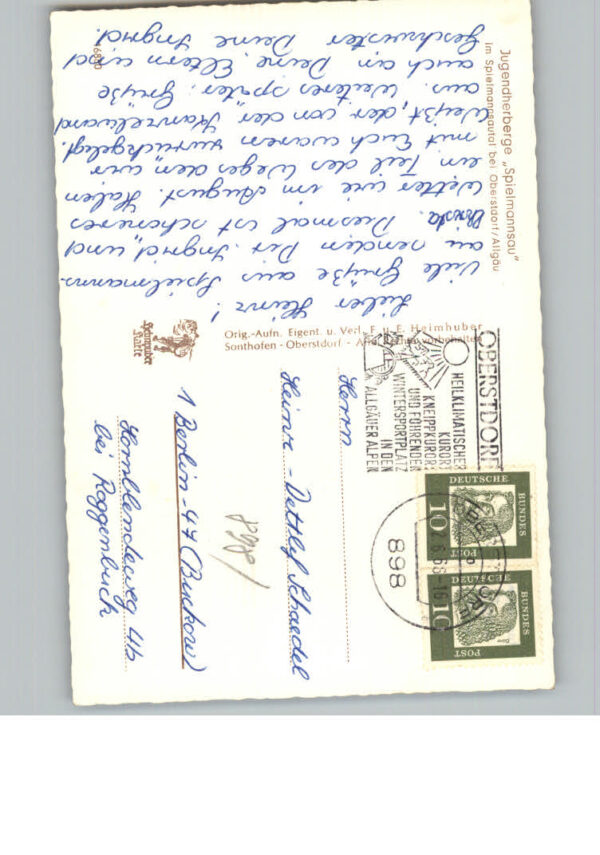 Jugendherberge „Spielmannsau"
Im Spielmannsautal bei Oberstdorf/Allgäu
Lieber Heinz!
Viele Grüße aus Spielmanns-
au senden Dir Ingrid, und
Christa. Diesmal ist schöneres
Wetter wie im August. Haben
ein Teil des Weges den wir
mit Euch waren zurückgelegt.
Weißt, der von der Kanzelwand
aus. Weiteres später. Grüße
auch an Deine Eltern und
Geschwister Deine Ingrid.
Orig.-Aufn. Eigent. u. Verl. F. u. E. Heimhuber
Sonthofen - Oberstdorf - Alle Rechte vorbehalten
Heimhuber
Karte
OBERSTDORF
HEILKLIMATISCHER
KURORT
KNEIPPKURORT
UND FÜHRENDER
WINTERSPORTPLATZ
IN DEN
ALLGÄUER ALPEN
898
DEUTSCHE
BUNDES
POST
10
DEUTSCHE
BUNDES
POST
10
Herrn
Heinz-Dettlef Schaedel
1 Berlin-47 (Buckow)
Hornblendeweg 4b
bei Roggenbuck